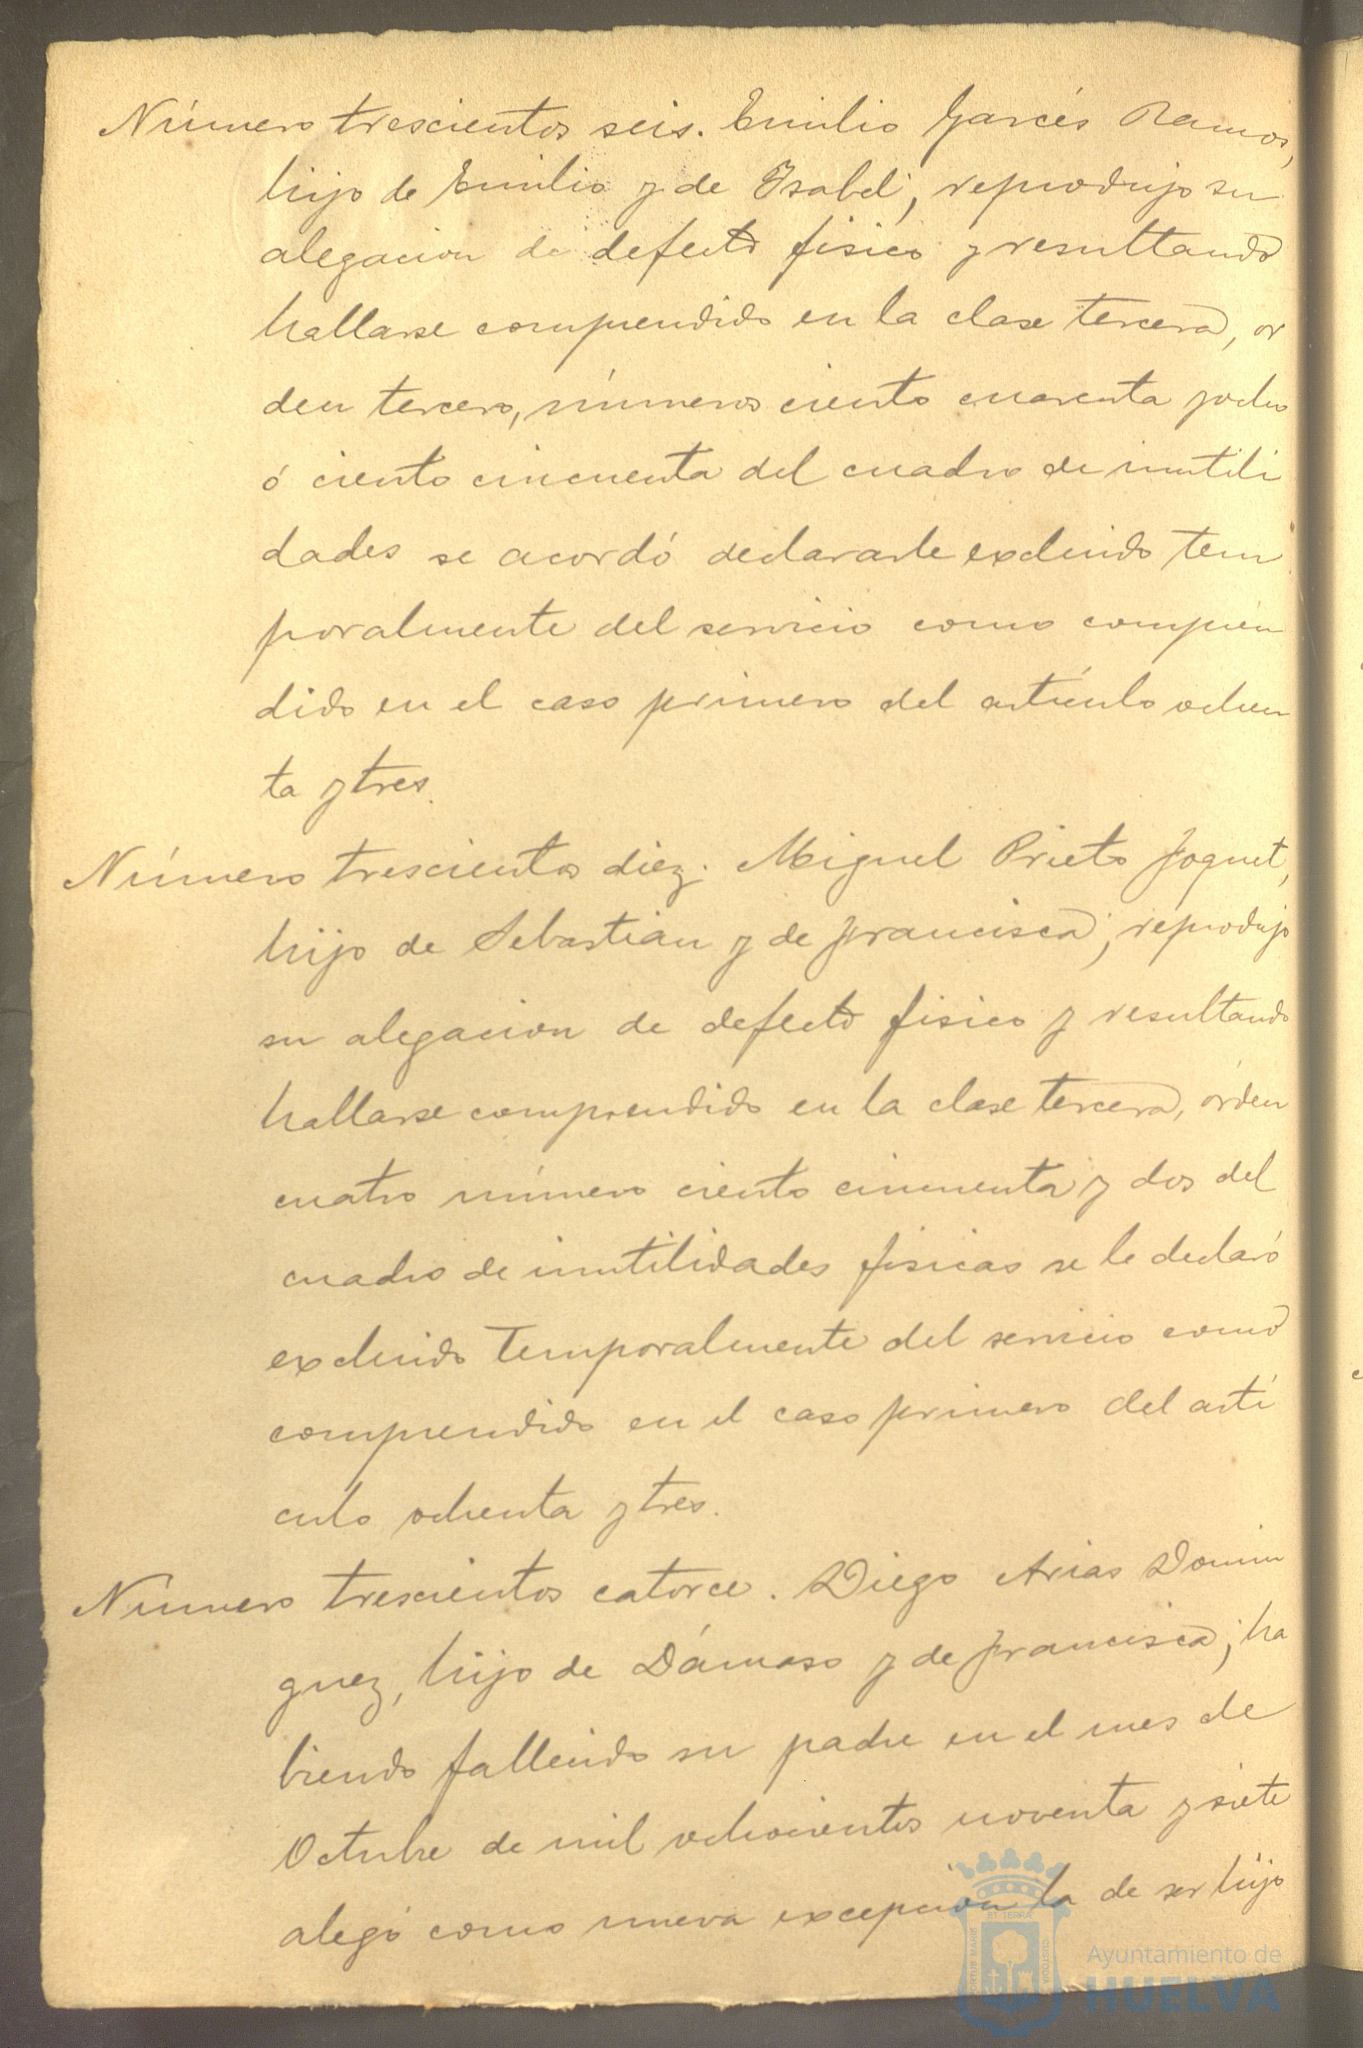 Número trescientos seis. Emilio Garcés Ramos,
hijo de Emilio y de Isabel, reprodujo su
alegacion de defecto fisico y resultando
hallarse comprendido en la clase tercera, or
den tercero, números ciento cuarenta y ocho
ó ciento cincuenta del cuadro de inutili
dades se acordó declararle excluido tem
poralmente del servicio como compren
dido en el caso primero del artículo ochen
ta y tres.
Número trescientos diez. Miguel Prieto Joquet,
hijo de Sebastian y de Francisca; reprodujo
su alegacion de defecto fisico y resultando
hallarse comprendido en la clase tercera, órden
cuatro número ciento cincuenta y dos del
cuadro de inutilidades fisicas se le declaró
excluido temporalmente del servicio como
comprendido en el caso primero del artí
culo ochenta y tres.
Número trescientos catorce. Diego Arias Domin
guez, hijo de Dámaso y de Francisca; ha
biendo fallecido su padre en el mes de
Octubre de mil ochocientos noventa y siete
alegó como nueva excepcion la de ser hijo
Ayuntamiento de
HUELVA